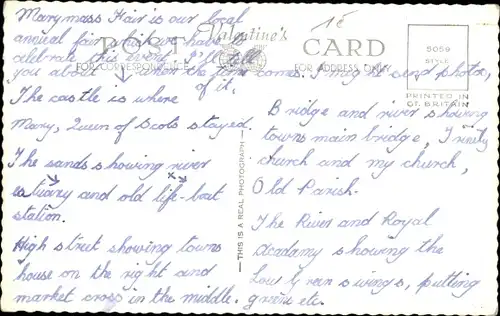 Marymass Fair is our local
annual fair
celebrate this event. I'll tell
you about when the time comes. I might send photo,
of it.
The castle is where
Mary, Queen of Scots stayed
The sands showing river
estuary and old life-boat
station.
High street showing towns
house on the right and
market cross in the middle.
POST CARD
Valentine's
FOR CORRESPONDENCE
FOR ADDRESS ONLY
5059
STYLE
PRINTED IN
GT. BRITAIN
THIS IS A REAL PHOTOGRAPH
Bridge and river showing
towns main bridge, Trinity
church and my church,
Old Parish.
The River and Royal
Academy showing the
Low Green swings, putting
green etc.